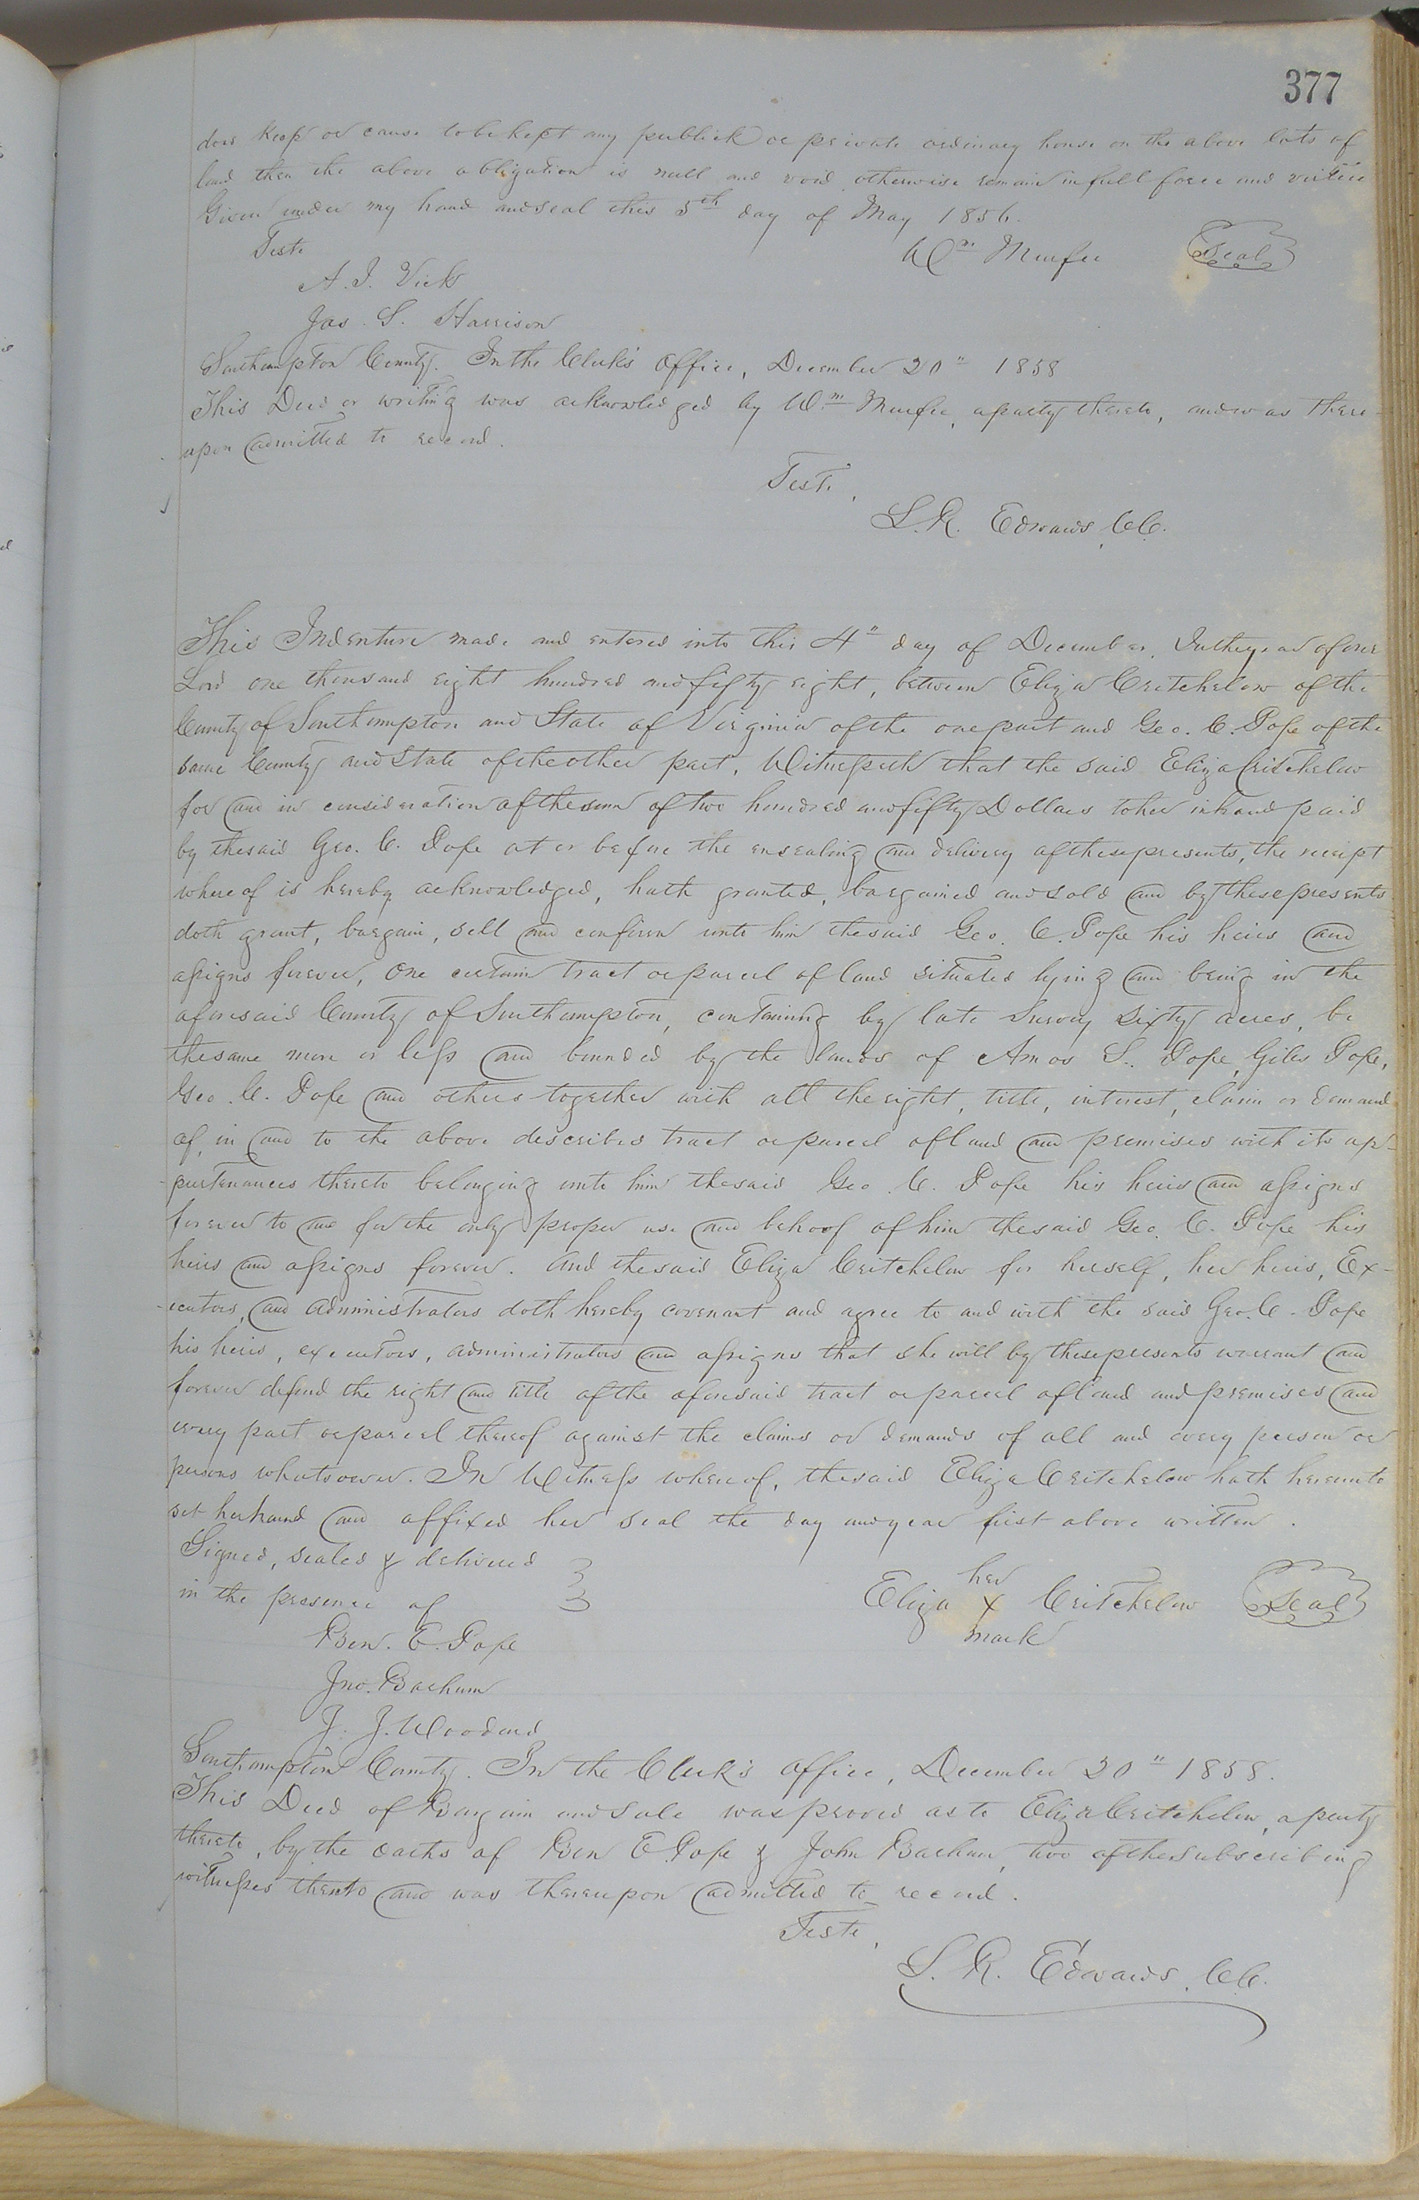 377
does keep or cause to be kept any publick or private ordinary house on the above lots of
land then the above obligation is null and void otherwise remain in full force and virtue
Given under my hand and seal this 5th day of May 1856.
Teste
Wm Murfee Seal
A. J. Vick
Jas. S. Harrison
Southampton County. In the Clerk's Office, December 20" 1858
This Deed or writing was acknowledged by Wm Murfee, a party thereto, and was there-
upon admitted to record.
Teste,
L. R. Edwards, CC.
This Indenture made and entered into this 4" day of December, In the year of our
Lord one thousand eight hundred and fifty eight, between Eliza Critchelow of the
County of Southampton and State of Virginia of the one part and Geo. C. Pope of the
same County and State of the other part, Witnesseth that the said Eliza Critchelow
for and in consideration of the sum of two hundred and fifty Dollars to her in hand paid
by the said Geo. C. Pope at or before the ensealing and delivery of these presents, the receipt
whereof is hereby acknowledged, hath granted, bargained and sold and by these presents
doth grant, bargain, sell and confirm unto him the said Geo. C. Pope his heirs and
assigns forever, One certain tract or parcel of land situated lying and being in the
aforesaid County of Southampton, containing by late Survey sixty acres, be
the same more or less and bounded by the lands of Amos S. Pope, Giles Pope,
Geo. C. Pope and others together with all the right, title, interest, claim or demand
of, in and to the above described tract or parcel of land and premises with its ap-
-purtenances thereto belonging unto him the said Geo. C. Pope his heirs and assigns
forever to and for the only proper use and behoof of him the said Geo. C. Pope his
heirs and assigns forever. And the said Eliza Critchelow for herself, her heirs, Ex-
-ecutors, and administrators doth hereby covenant and agree to and with the said Geo. C. Pope
his heirs, executors, administrators and assigns that she will by these presents warrant and
forever defend the right and title of the aforesaid tract or parcel of land and premises and
every part or parcel thereof against the claims or demands of all and every person or
persons whatsoever. In Witness whereof, the said Eliza Critchelow hath hereunto
set her hand and affixed her seal the day and year first above written.
Signed, sealed & delivered
in the presence of
her
Eliza X Critchelow Seal
mark
Ben. E. Pope
Jno. Barham
J. J. Woodard
Southampton County. In the Clerk's office, December 20" 1858.
This Deed of Bargain and Sale was proved as to Eliza Critchelow, a party
thereto, by the oaths of Ben E. Pope & John Barham, two of the subscribing
witnesses thereto and was thereupon admitted to record.
Teste,
L. R. Edwards, CC.